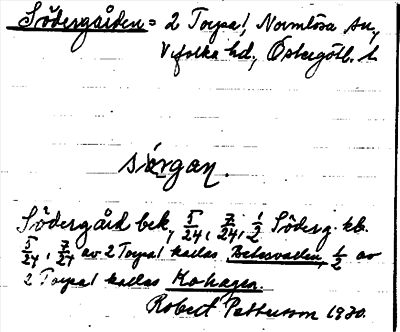 Södergården = 2 Torpa!, Normlösa sn.,
Vifolka hd., Östergötl. l.
sǿrgan.
Södergård bek, 5/24, 7/24, 1/2 Söderg. kb.
5/24, 7/24 av 2 Torpa! kallas Betesvallen, 1/2 av
2 Torpa! kallas
Robert Pettersson 1930.